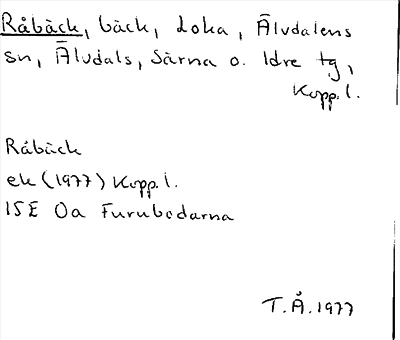 Råbäck, bäck, Loka, Älvdalens
sn, Älvdals, Särna o. Idre tg,
Kopp. l.
Råbäck
ek (1977) Kopp. l.
15E 0a Furubodarna
T.Å. 1977